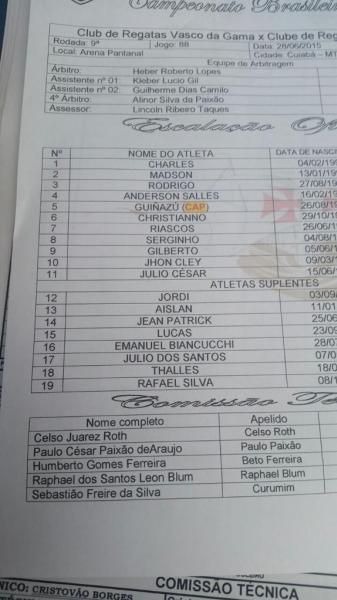 Campeonato Brasileir
Club de Regatas Vasco da Gama x Clube de Reg
Rodada: 9ª Jogo: 88 Data: 28/06/2015
Local: Arena Pantanal Cidade: Cuiabá – MT
Equipe de Arbitragem
Árbitro: Heber Roberto Lopes
Assistente nº 01: Kleber Lucio Gil
Assistente nº 02: Guilherme Dias Camilo
4º Árbitro: Alinor Silva da Paixão
Assessor: Lincoln Ribeiro Taques
Escalação Of
Nº NOME DO ATLETA DATA DE NASC
1 CHARLES 04/02/19
2 MADSON 13/01/19
3 RODRIGO 27/08/19
4 ANDERSON SALLES 16/02/19
5 GUIÑAZÚ (CAP) 26/08/19
6 CHRISTIANNO 29/10/19
7 RIASCOS 26/06/19
8 SERGINHO 04/08/1
9 GILBERTO 05/06/1
10 JHON CLEY 09/03/1
11 JULIO CÉSAR 15/06/1
ATLETAS SUPLENTES
12 JORDI 03/09/
13 AISLAN 11/01
14 JEAN PATRICK 25/06
15 LUCAS 23/09
16 EMANUEL BIANCUCCHI 28/0
17 JULIO DOS SANTOS 07/0
18 THALLES 18/0
19 RAFAEL SILVA 08/1
Comissão Té
Nome completo Apelido
Celso Juarez Roth Celso Roth
Paulo César Paixão deAraujo Paulo Paixão
Humberto Gomes Ferreira Beto Ferreira
Raphael dos Santos Leon Blum Raphael Blum
Sebastião Freire da Silva Curumim
COMISSÃO TÉCNICA
NICO: CRISTOVÃO BORGES